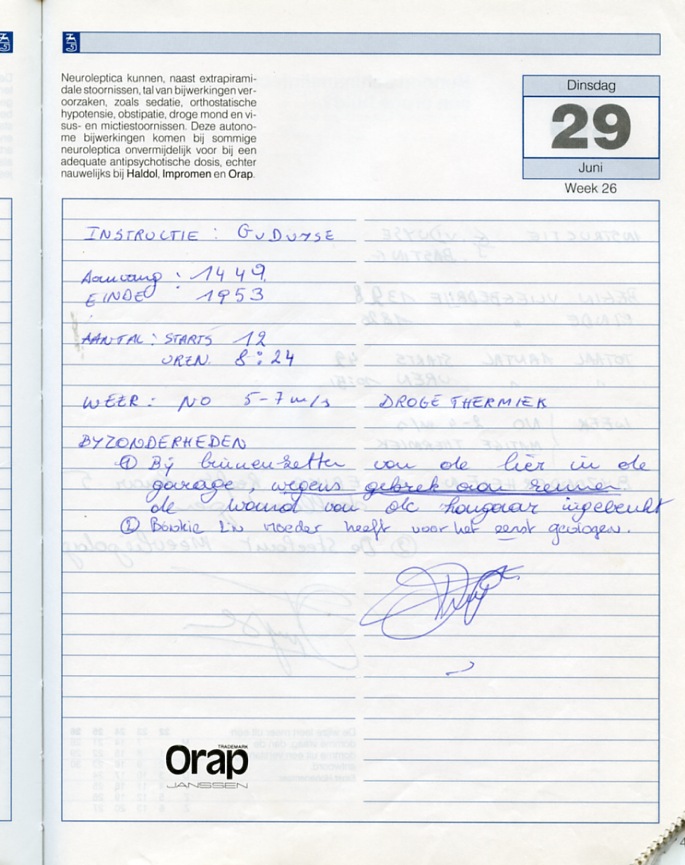 Neuroleptica kunnen, naast extrapirami-
dale stoornissen, tal van bijwerkingen ver-
oorzaken, zoals sedatie, orthostatische
hypotensie, obstipatie, droge mond en vi-
sus- en mictiestoornissen. Deze autono-
me bijwerkingen komen bij sommige
neuroleptica onvermijdelijk voor bij een
adequate antipsychotische dosis, echter
nauwelijks bij Haldol, Impromen en Orap.
Dinsdag
29
Juni
Week 26
INSTRUCTIE : G VDUYSE
Aanvang : 1449
EINDE 1953
AANTAL : STARTS 12
UREN 8:24
WEER : NO 5-7 m/s DROGE THERMIEK
BYZONDERHEDEN
① Bij binnenzetten van de lier in de
garage, wegens gebrek aan remmen
de wand van de hangaar ingebeukt
② moeder heeft voor het eerst gevlogen.
TRADEMARK
Orap
JANSSEN